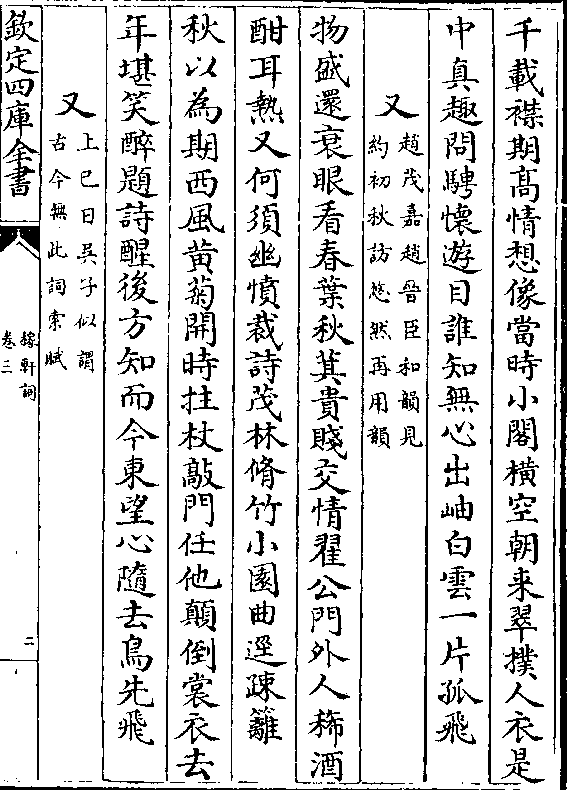 千載襟期髙情想像當時小閣横空朝来翠撲人衣是
中真趣問騁懷遊目誰知無心出岫白雲一片孤飛
又趙茂嘉趙晉臣和韻見
約初秋訪悠然再用韻
物盛還衰眼看春葉秋萁貴賤交情翟公門外人稀酒
酣耳熱又何須幽憤裁詩茂林脩竹小園曲逕疎籬
秋以為期西風黄菊開時拄杖敲門任他顛倒裳衣去
年堪笑醉題詩醒後方知而今東望心隨去鳥先飛
又上巳日吳子似謂
古今無此詞索賦
欽定四庫全書
稼軒詞
卷三
二